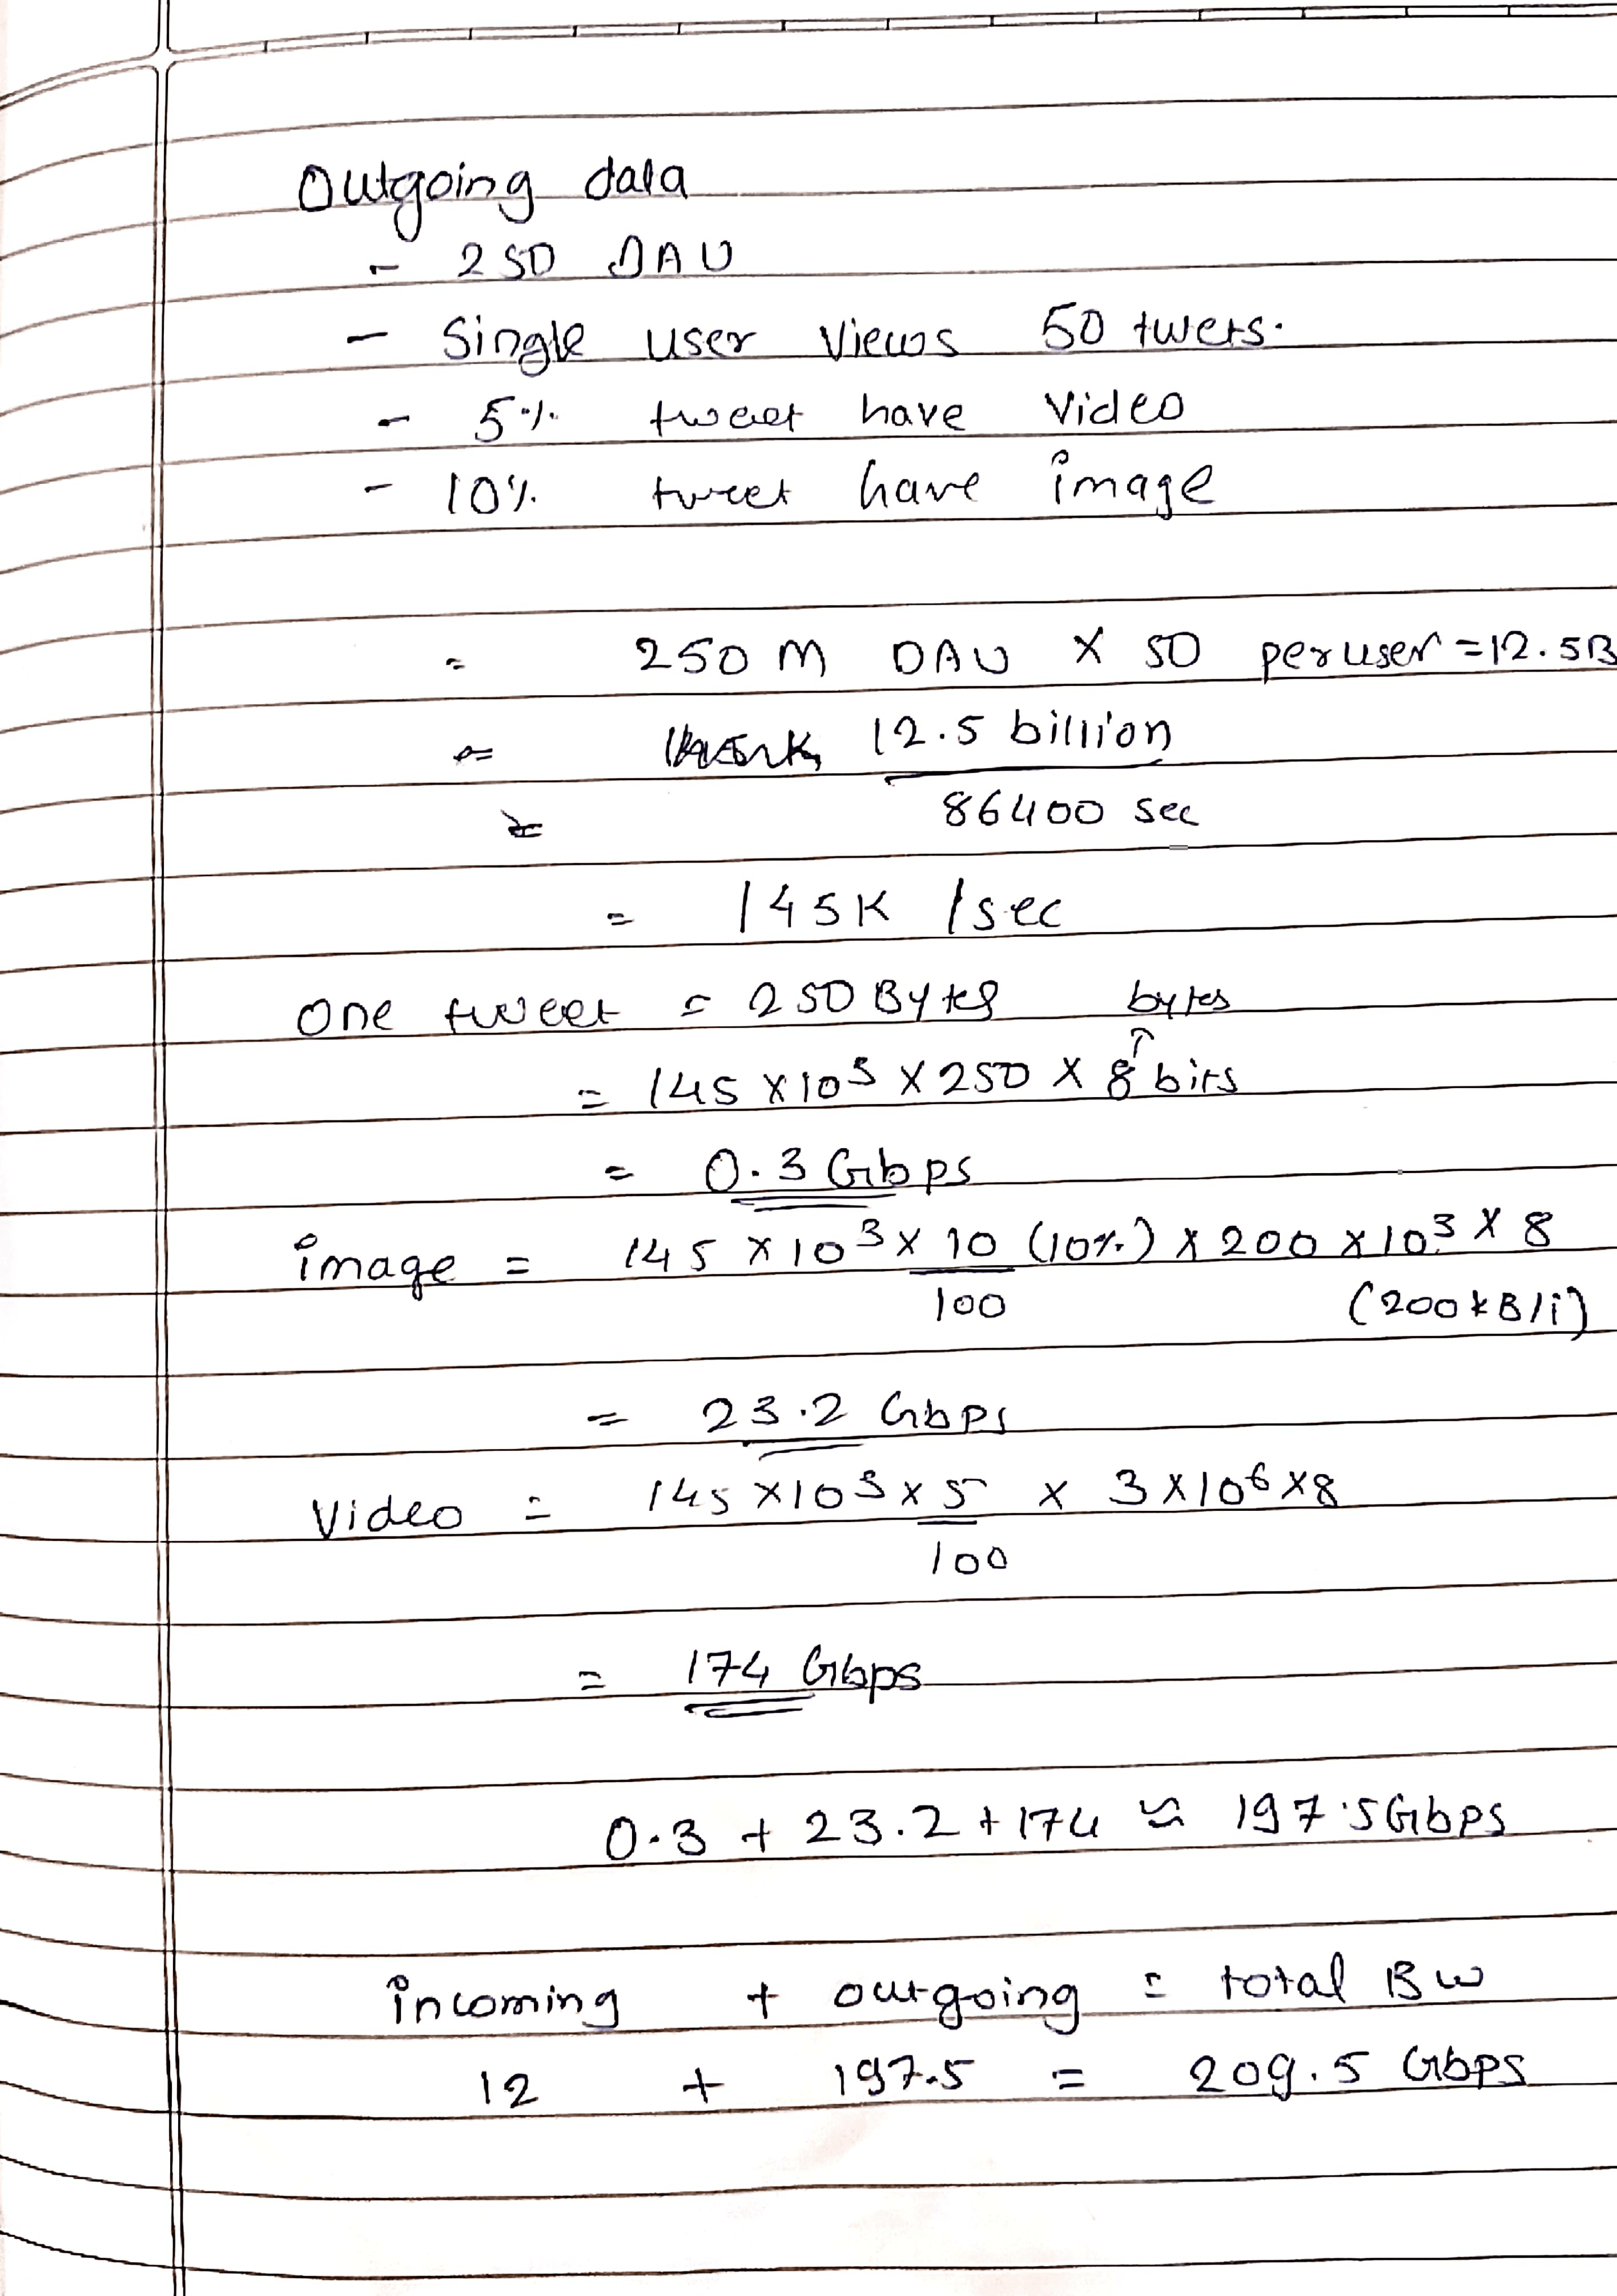 Outgoing data
- 250 DAU
- Single user views 50 twets.
- 5% tweet have video
- 10% tweet have image
= 250 M DAU X 50 per user = 12.5B
= 12.5 billion
86400 sec
= 145K /sec
One tweet = 250 Bytes bytes
= 145 X 10³ X 250 X 8 bits
= 0.3 Gbps
image = 145 X 10³ X 10 (10%) X 200 X 10³ X 8
100 (200kB/i)
= 23.2 Gbps
Video = 145 X 10³ X 5 X 3 X 10⁶ X 8
100
= 174 Gbps
0.3 + 23.2 + 174 ≈ 197.5 Gbps
incoming + outgoing = total BW
12 + 197.5 = 209.5 Gbps